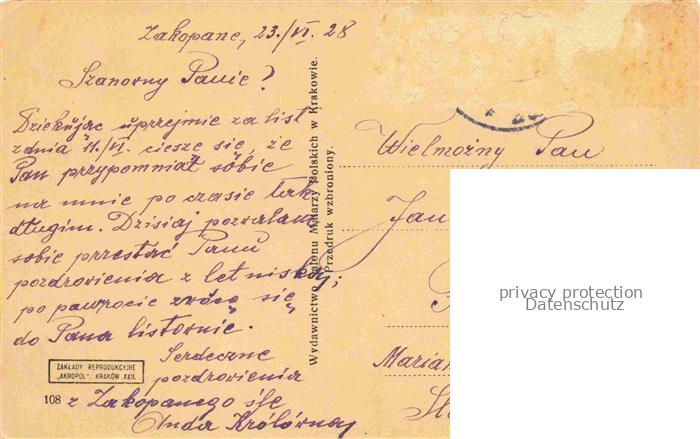 Zakopane, 23./VI. 28
Szanowny Panie?
Dziękując uprzejmie za list
z dnia 11./VI. cieszę się, że
Pan przypomniał sobie
na mnie po czasie tak
długim. Dzisiaj pozwalam
sobie przesłać Panu
pozdrowienia z letniska,
po powrocie zwócę się
do Pana listownie.
Serdeczne
pozdrowienia
z Zakopanego śle
Anda Królówna
ZAKŁADY REPRODUKCYJNE
„AKROPOL”, KRAKÓW XXII.
108
Wydawnictwo Salonu Malarzy Polskich w Krakowie.
Przedruk wzbroniony.
Wielmożny Pan
Jan
Marian
privacy protection
Datenschutz